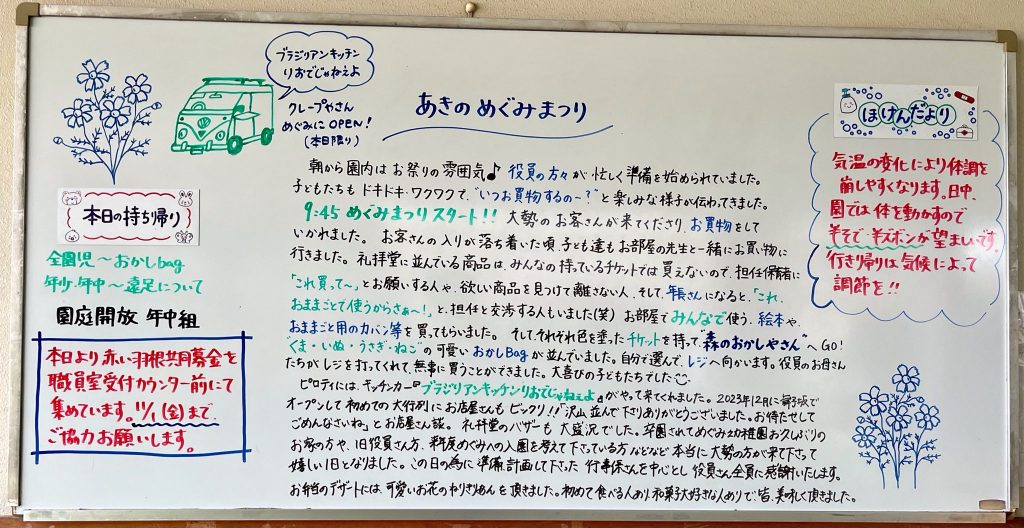 ブラジリアンキッチン
りおでじゃねぇよ
クレープやさん
めぐみにOPEN!
(本日限り)
本日の持ち帰り
全園児〜おかしbag
年少、年中〜遠足について
園庭開放 年中組
本日より赤い羽根共同募金を
職員室受付カウンター前にて
集めています。11/1(金)まで、
ご協力お願いします。
あきの めぐみまつり
朝から園内はお祭りの雰囲気♪ 役員の方々が忙しく準備を始められていました。
子どもたちもドキドキ・ワクワクで“いつお買物するの〜?”と楽しみな様子が伝わってきました。
9:45 めぐみまつりスタート!! 大勢のお客さんが来てくださり、お買物をして
いかれました。 お客さんの入りが落ち着いた頃、子ども達もお部屋の先生と一緒にお買い物に
行きました。礼拝堂に並んでいる商品は、みんなの持っているチケットでは買えないので、担任保育者に
「これ買って〜」とお願いする人や、欲しい商品を見つけて離さない人、そして、年長さんになると、「これ、
おままごとで使うからさぁ〜!」と、担任と交渉する人もいました(笑) お部屋でみんなで使う、絵本や、
おままごと用のカバン等を買ってもらいました。 そして、それぞれ色を塗ったチケットを持って“森のおかしやさん”へGO!
“くま・いぬ・うさぎ・ねこ”の可愛いおかしBagが並んでいました。自分で選んで、レジへ向かいます。役員のお母さん
たちがレジを打ってくれて、無事に買うことができました。大喜びの子どもたちでした
ピロティには、キッチンカー『ブラジリアンキッチンりおでじゃねぇよ』がやって来てくれました。2023年12月に
オープンして初めての大行列にお店屋さんもビックリ!!「沢山並んで下さりありがとうございました。お待たせして
ごめんなさいね」とお店屋さん談。 礼拝堂のバザーも大盛況でした。卒園されてめぐみ幼稚園お久しぶりの
お家の方や、旧役員さん方、来年度めぐみへの入園を考えて下さっている方などなど本当に大勢の方が来て下さって
嬉しい1日となりました。この日の為に準備、計画して下さった行事係さんを中心とし役員さん全員に感謝いたします。
お弁当のデザートには、可愛いお花のねりきりあんを頂きました。初めて食べる人あり、和菓子大好きな人ありで、皆、美味しく頂きました。
ほけんだより
気温の変化により体調を
崩しやすくなります。日中、
園では体を動かすので
半そで、半ズボンが望ましいです。
行き帰りは気候によって
調節を!!